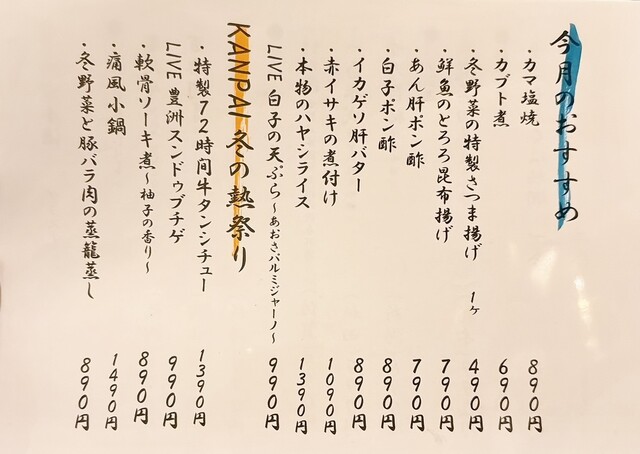 今月のおすすめ
・カマ塩焼 890円
・カブト煮 690円
・冬野菜の特製さつま揚げ 1ヶ 490円
・鮮魚のとろろ昆布揚げ 790円
・あん肝ポン酢 790円
・白子ポン酢 890円
・イカゲソ肝バター 890円
・赤イサキの煮付け 1090円
・本物のハヤシライス 1390円
LIVE 白子の天ぷら～あおさパルミジャーノ～ 990円
KANPAI 冬の熱祭り
・特製72時間牛タンシチュー 1390円
LIVE 豊洲スンドゥブチゲ 990円
・軟骨ソーキ煮～柚子の香り～ 890円
・痛風小鍋 1490円
・冬野菜と豚バラ肉の蒸籠蒸し 890円